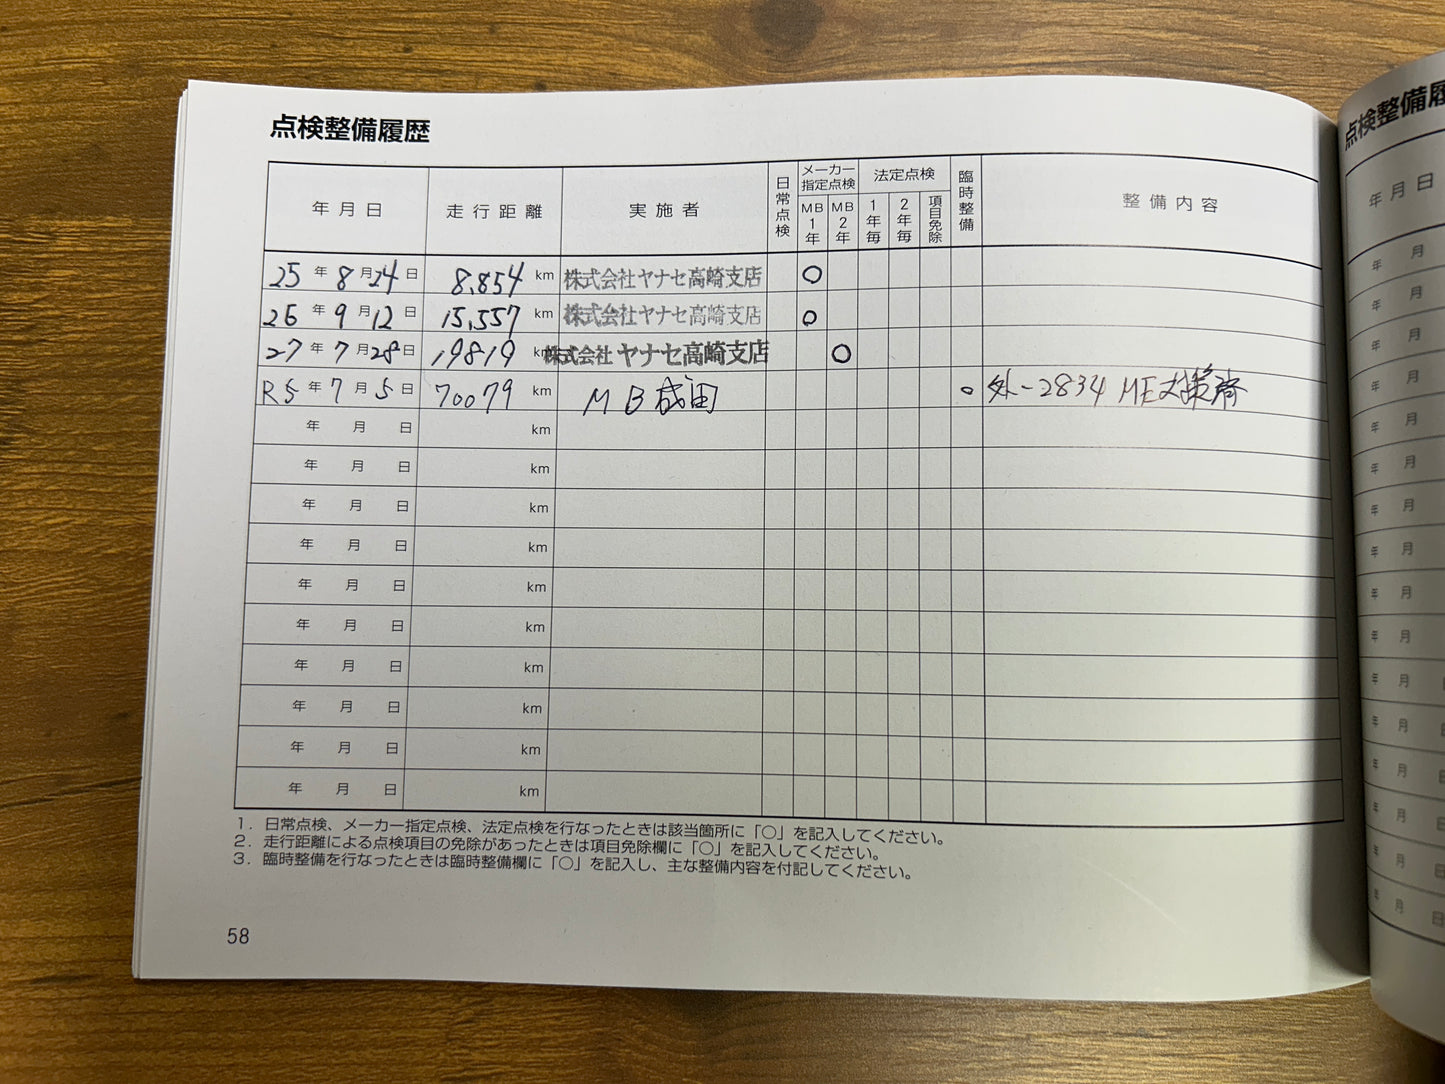 点検整備履歴
年月日 走行距離 実施者 日常点検 メーカー指定点検 MB1年 MB2年 法定点検 1年毎 2年毎 項目免除 臨時整備 整備内容
25年8月24日 8,854km 株式会社ヤナセ高崎支店 ○
26年9月12日 15,557km 株式会社ヤナセ高崎支店 ○
27年7月28日 19819km 株式会社ヤナセ高崎支店 ○
R5年7月5日 70079km MB成田 ○ 外-2834 ME対策済
年 月 日 km
年 月 日 km
年 月 日 km
年 月 日 km
年 月 日 km
年 月 日 km
年 月 日 km
年 月 日 km
年 月 日 km
年 月 日 km
1. 日常点検、メーカー指定点検、法定点検を行なったときは該当箇所に「○」を記入してください。
2. 走行距離による点検項目の免除があったときは項目免除欄に「○」を記入してください。
3. 臨時整備を行なったときは臨時整備欄に「○」を記入し、主な整備内容を付記してください。
58
点検整備履
年月日
年 月
年 月
年 月
年 月
年 月
年 月
年 月
年 月
年 月
年 月
年 月
年 月
年 月
年 月 日
年 月 日
年 月 日